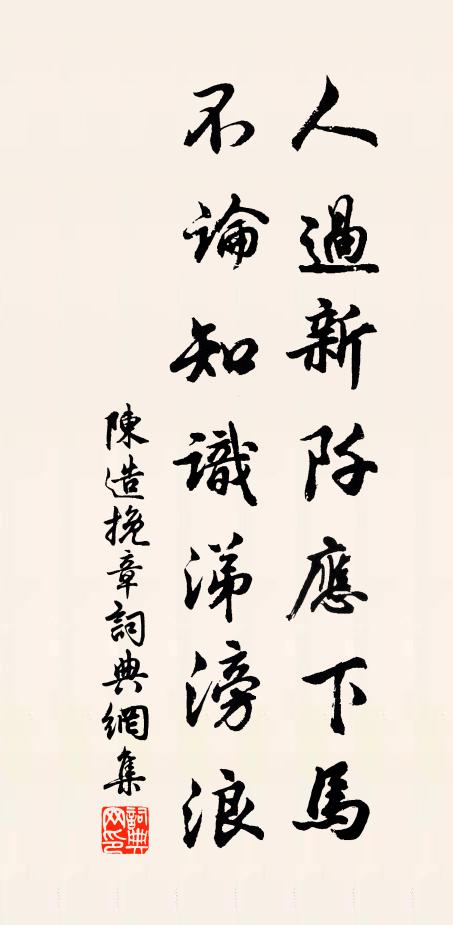 人過新阡應下馬
不論知識涕滂浪
陳造挽章詞典網集
詞典網印